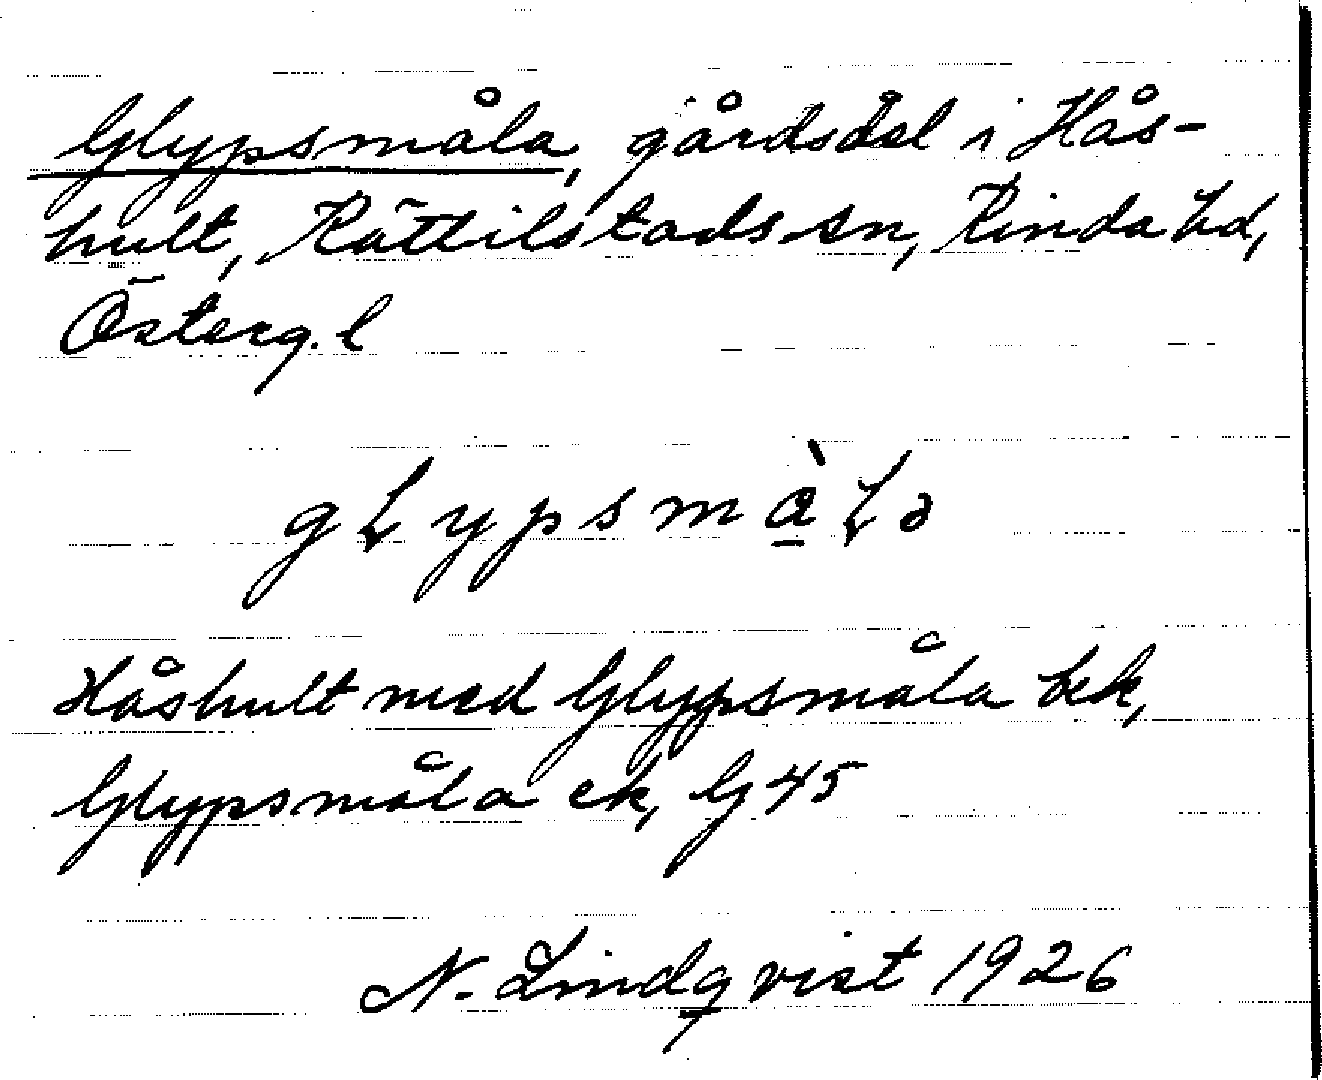 Glypsmåla, gårdsdel i Hås-
hult, Kättilstads sn, Kinda hd,
Österg. l
gLypsmàLə
Håshult med Glypsmåla bek,
Glypsmåla ek, G 45
N. Lindqvist 1926